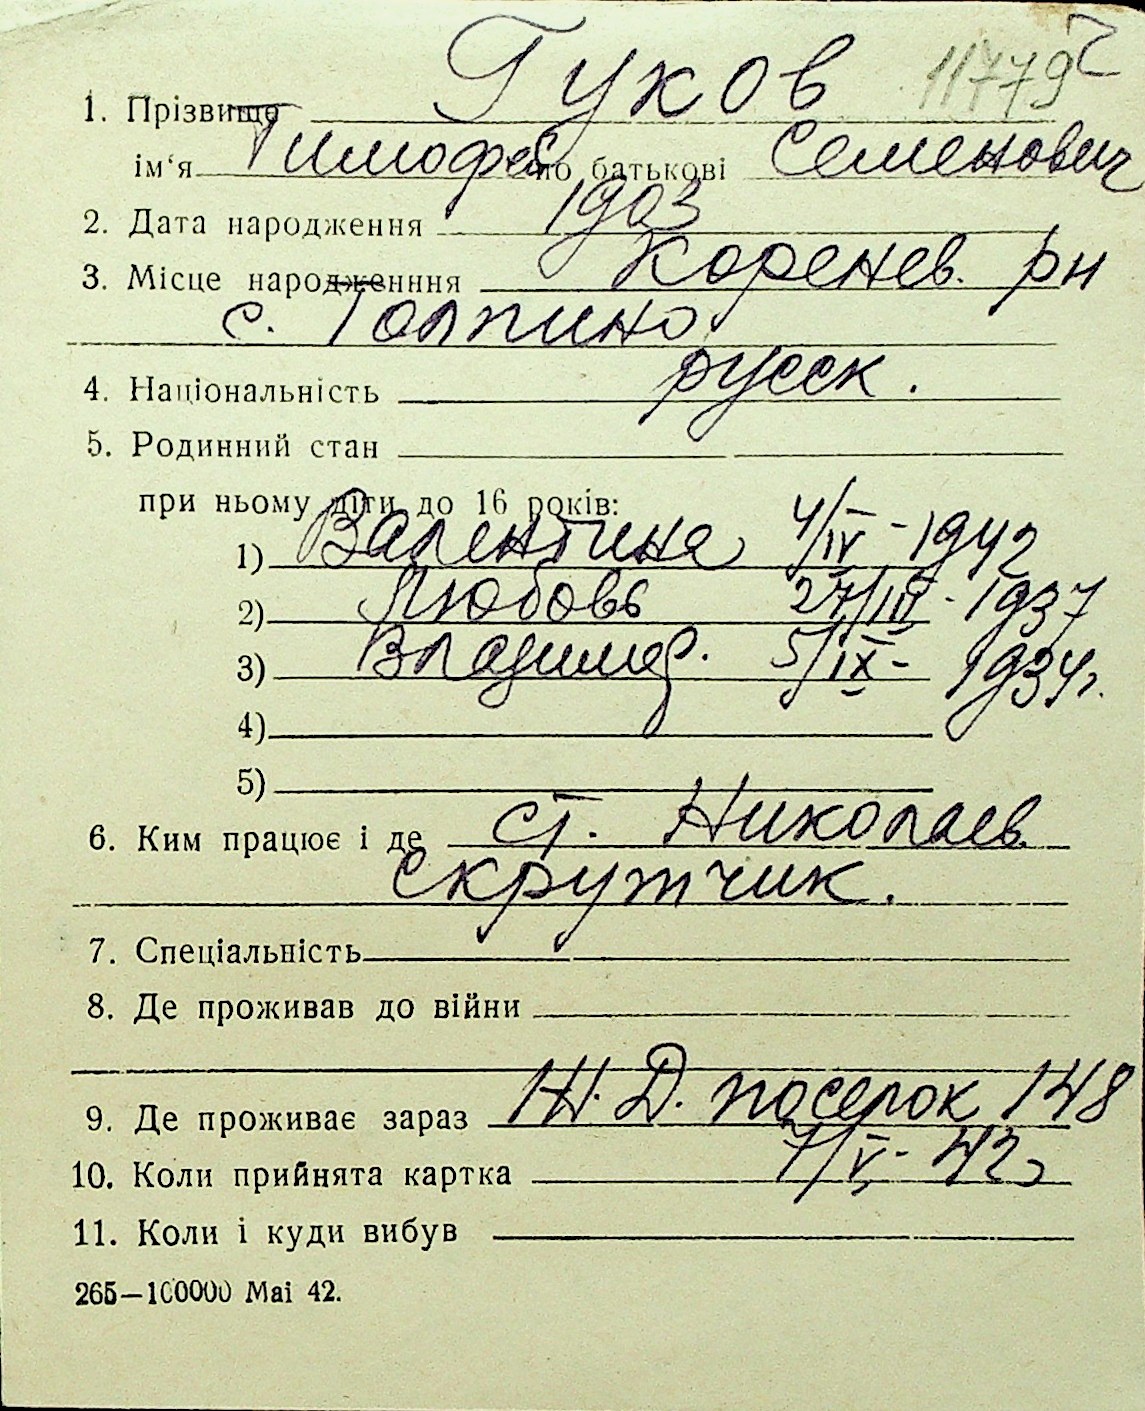 11779
1. Прізвище Гуков
ім‘я Тимофей по батькові Семенович
2. Дата народження 1903
3. Місце народженння Коренев. рн
с. Толпино
4. Національність русск.
5. Родинний стан
при ньому діти до 16 років:
1) Валентина 4/IV - 1942
2) Любовь 27/III - 1937
3) Владимир. 5/IX - 1934г.
4)
5)
6. Ким працює і де ст. Николаев.
скрутчик.
7. Спеціальність
8. Де проживав до війни
9. Де проживає зараз Ж. Д. поселок 148
10. Коли прийнята картка 7/V - 42г
11. Коли і куди вибув
265—100000 Маі 42.